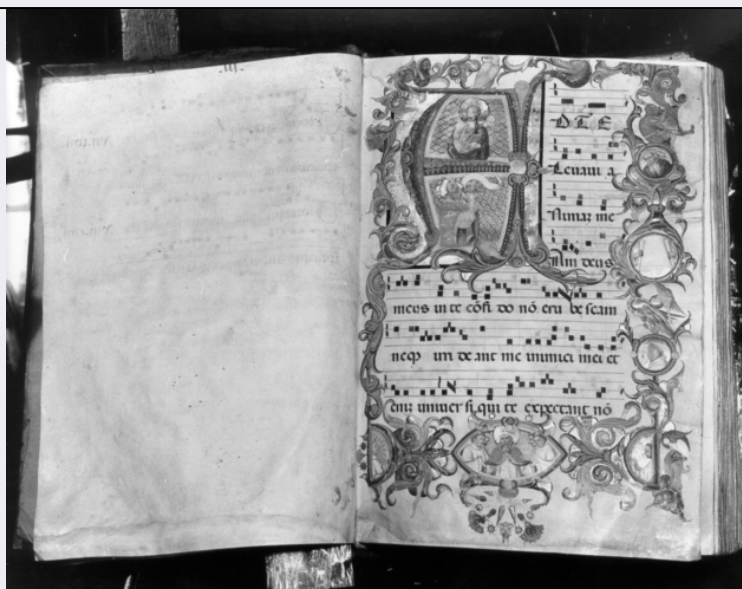 D TE
Leuaui a
nimaz me
am deus
meus in te cõfi do nõ eru be scam
neqȝ irri de ant me inimici mei et
eniz uniuer si qui te expectant nõ